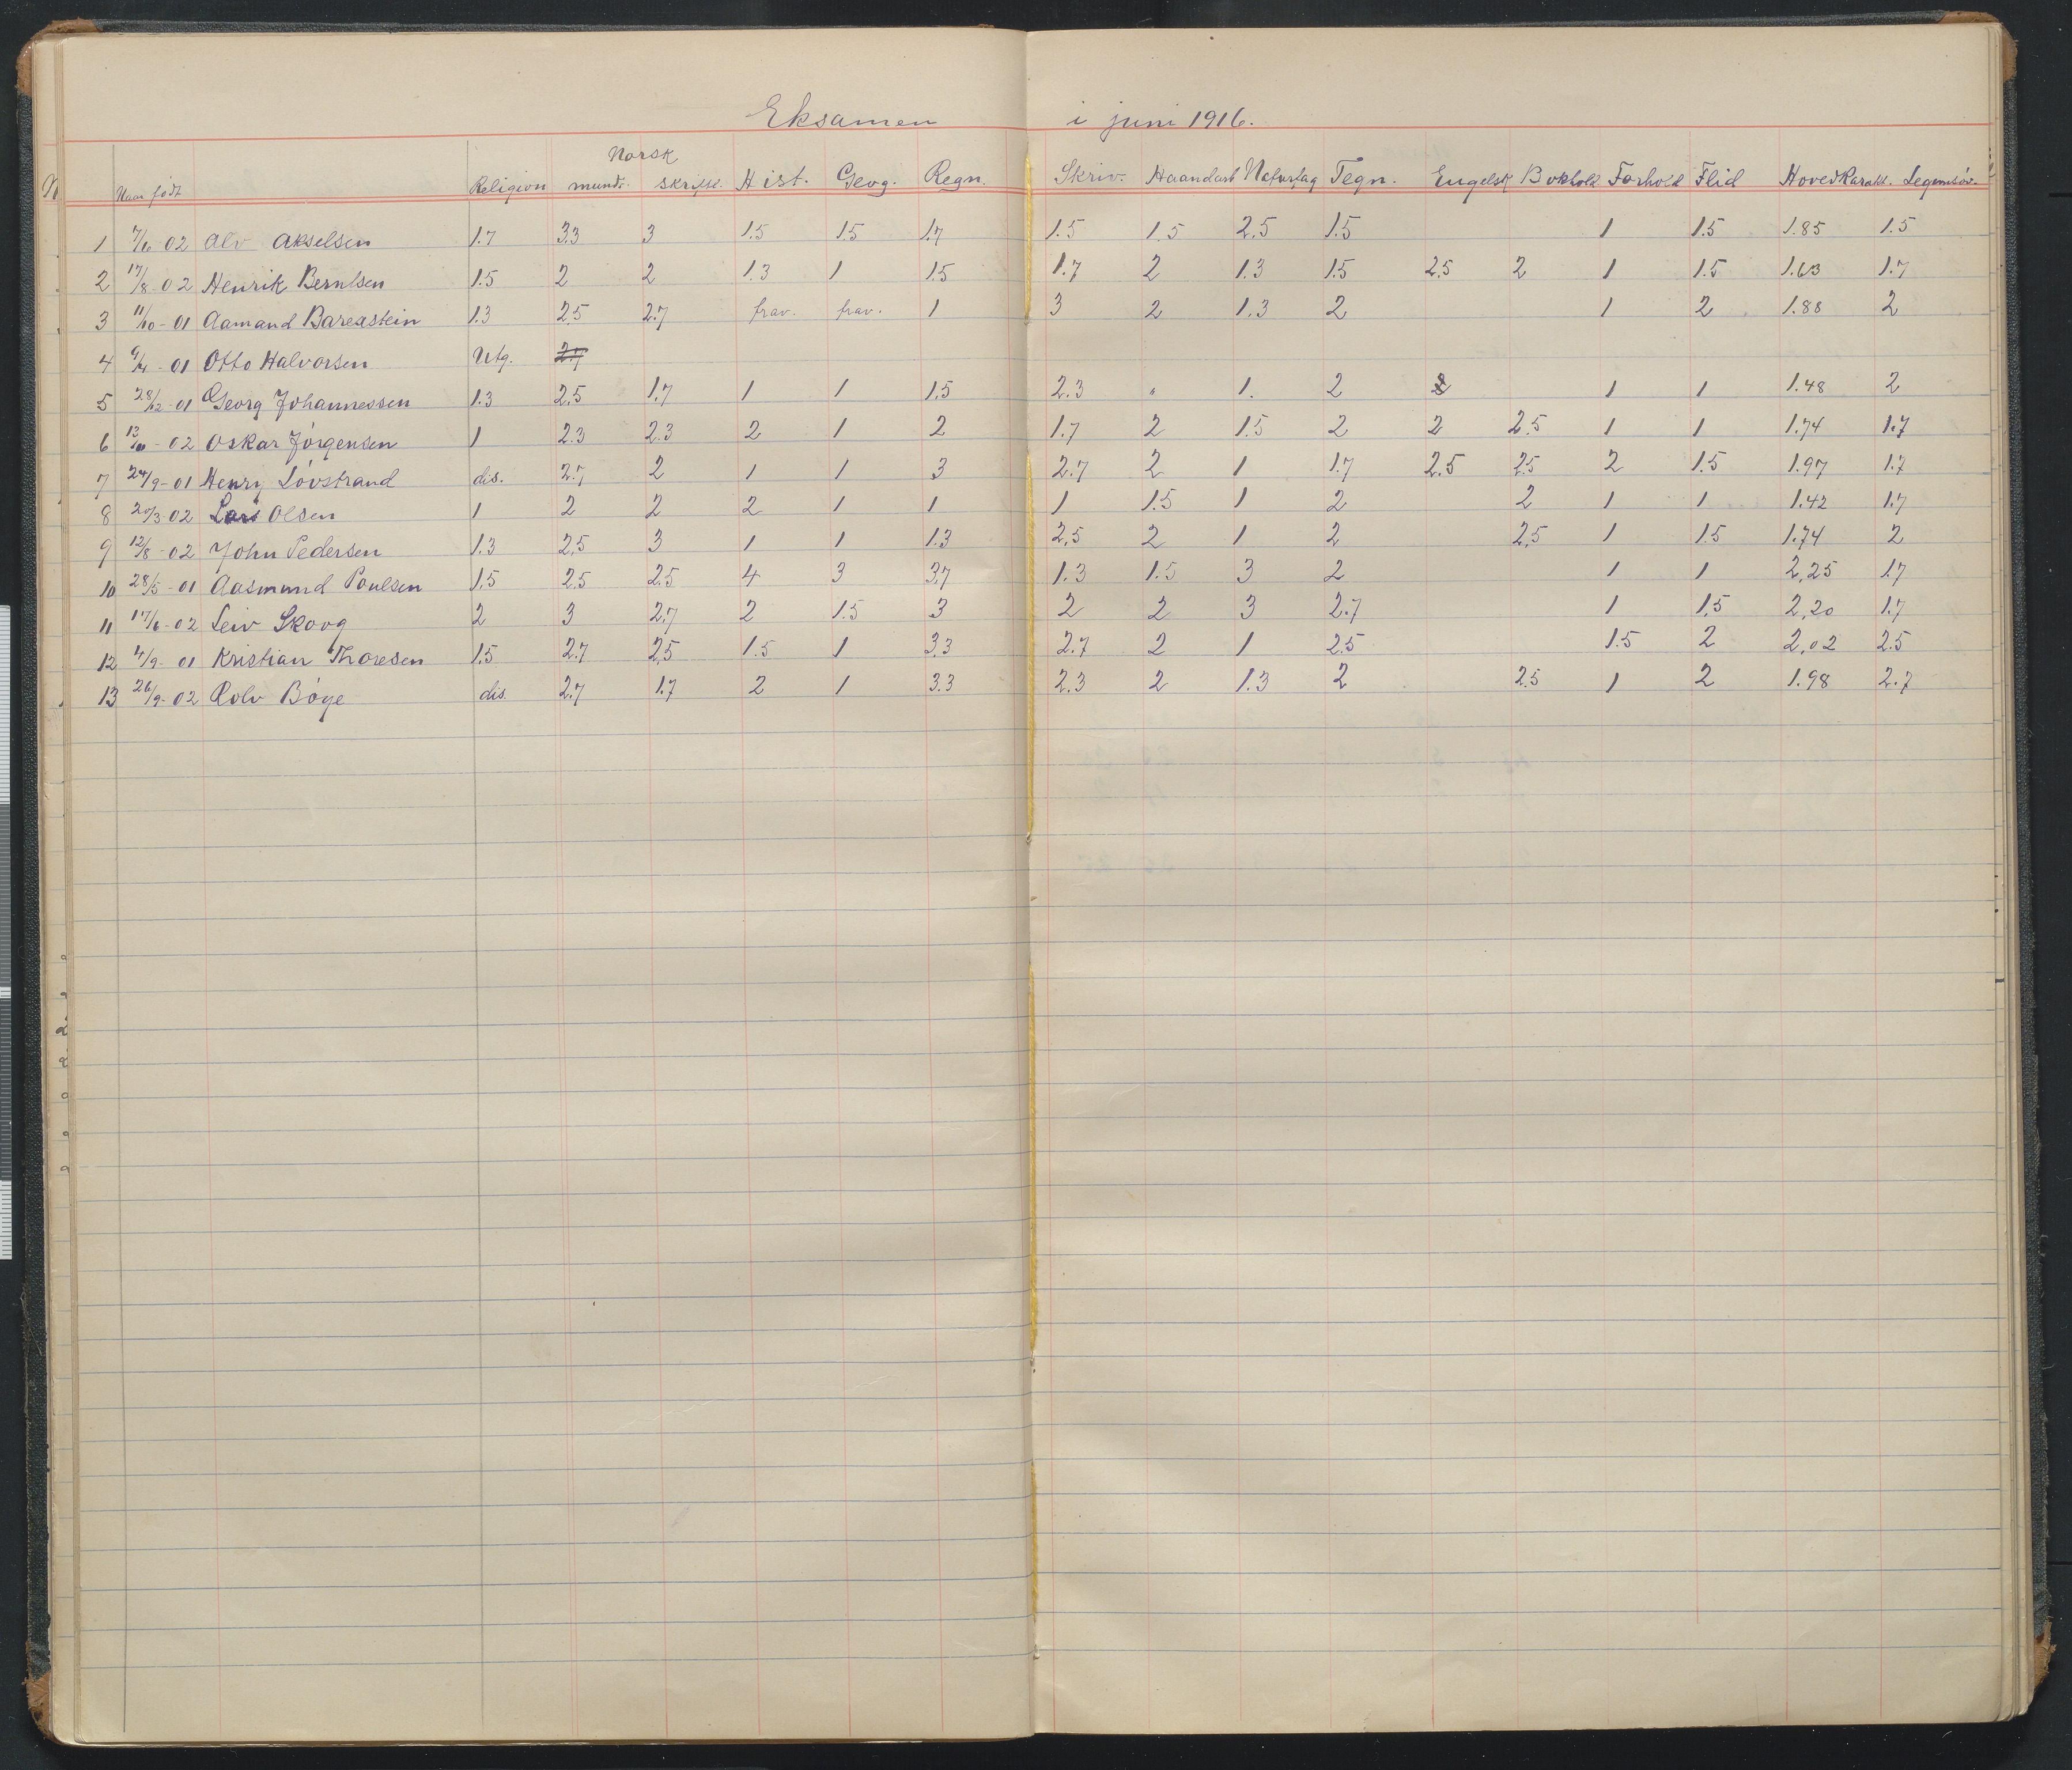 Eksamen i juni 1916.
Norsk
No Naar født Religion mundt. skriftl. Hist. Geog. Regn. Skriv. Haandarb Naturfag Tegn. Engelsk Bokhold Forhold Flid Hovedkarakt. Legemsöv.
1 7/6 02 Alv Akselsen 1.7 3.3 3 1.5 1.5 1.7 1.5 1.5 2.5 1.5 1 1.5 1.85 1.5
2 17/8-02 Henrik Berntsen 1.5 2 2 1.3 1 1.5 1.7 2 1.3 1.5 2.5 2 1 1.5 1.63 1.7
3 11/10-01 Aamand Bareastein 1.3 2.5 2.7 frav. frav. 1 3 2 1.3 2 1 2 1.88 2
4 9/4-01 Otto Halvorsen Utg. 2.7
5 28/12-01 Georg Johannessen 1.3 2.5 1.7 1 1 1.5 2.3 " 1. 2 1 1 1.48 2
6 13/10-02 Oskar Jörgensen 1 2.3 2.3 2 1 2 1.7 2 1.5 2 2 2.5 1 1 1.74 1.7
7 24/9-01 Henry Lövstrand dis. 2.7 2 1 1 3 2.7 2 1 1.7 2.5 2.5 2 1.5 1.97 1.7
8 20/3-02 Lars Olsen 1 2 2 2 1 1 1 1.5 1 2 2 1 1 1.42 1.7
9 12/8-02 John Pedersen 1.3 2.5 3 1 1 1.3 2.5 2 1 2 2.5 1 1.5 1.74 2
10 28/5-01 Aasmund Poulsen 1.5 2.5 2.5 4 3 3.7 1.3 1.5 3 2 1 1 2,25 1.7
11 17/6-02 Leiv Skovg 2 3 2.7 2 1.5 3 2 2 3 2.7 1 1.5 2,20 1.7
12 4/9-01 Kristian Thoresen 1.5 2.7 2.5 1.5 1 3.3 2.7 2 1 2.5 1.5 2 2,02 2.5
13 26/9-02 Rolv Böye dis. 2.7 1.7 2 1 3.3 2.3 2 1.3 2 2.5 1 2 1.98 2.7